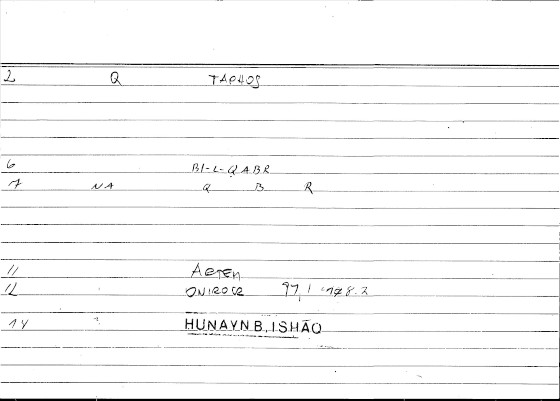 2 Q TAPHOS
6 BI-L-QABR
7 NA Q B R
11 ARTEM
12 ONIROCR 97,1 178.2
14 HUNAYN B. ISHĀQ